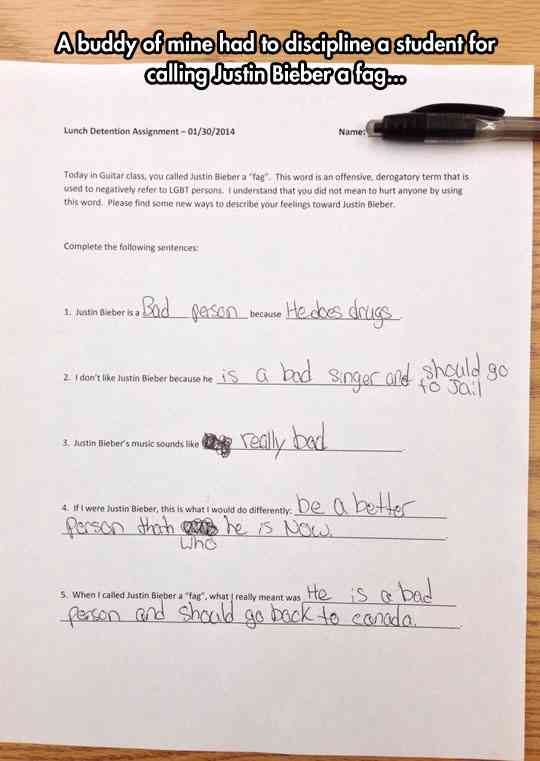 A buddy of mine had to discipline a student for
calling Justin Bieber a fag...
Lunch Detention Assignment – 01/30/2014 Name:
Today in Guitar class, you called Justin Bieber a "fag". This word is an offensive, derogatory term that is
used to negatively refer to LGBT persons. I understand that you did not mean to hurt anyone by using
this word. Please find some new ways to describe your feelings toward Justin Bieber.
Complete the following sentences:
1. Justin Bieber is a Bad person because He does drugs
2. I don't like Justin Bieber because he is a bad singer and should go
to Jail
3. Justin Bieber's music sounds like really bad
4. If I were Justin Bieber, this is what I would do differently: be a better
person than he is Now.
who
5. When I called Justin Bieber a "fag", what I really meant was He is a bad
person and should go back to canada.